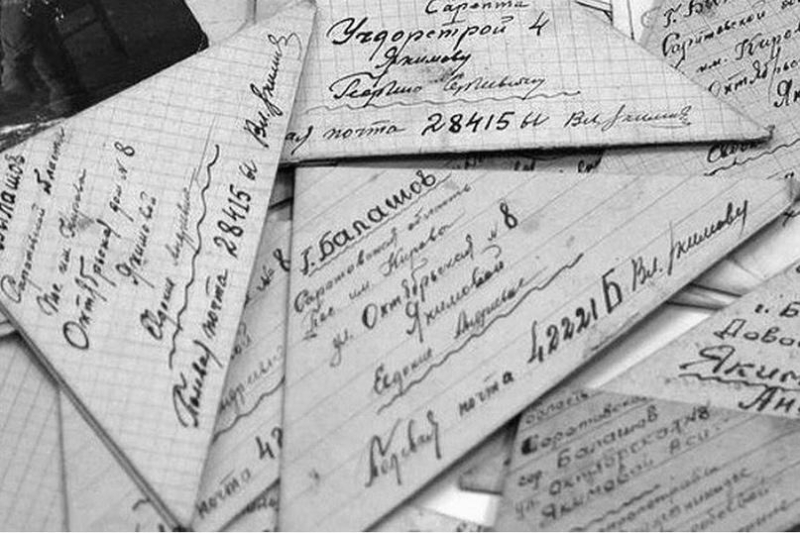 Сарепта
Учдорстрой 4
Якимову
Георгию Сергеевичу
ая почта 28415 Ы Вл. Якимов
г. Ба
Саратовской об
им. Киров
Октябрьск
Як
Балашов
Саратовской области
Пос им. Кирова
Октябрьская дом № 8
Якимовой
Евдокие Андреевне
Полевая почта 28415 Ы Вл. Якимов
г. Балашов
Саратовская область
Пос им. Кирова
ул. Октябрьская № 8
Якимовой
Евдокие Андреевне
Полевая почта 42221 Б Вл. Якимову
№ 8
ой
почта 42
г. Б
Яким
Ан
область
Саратовская
гор. Балашов
ул Октябрьская № 8
Якимовой